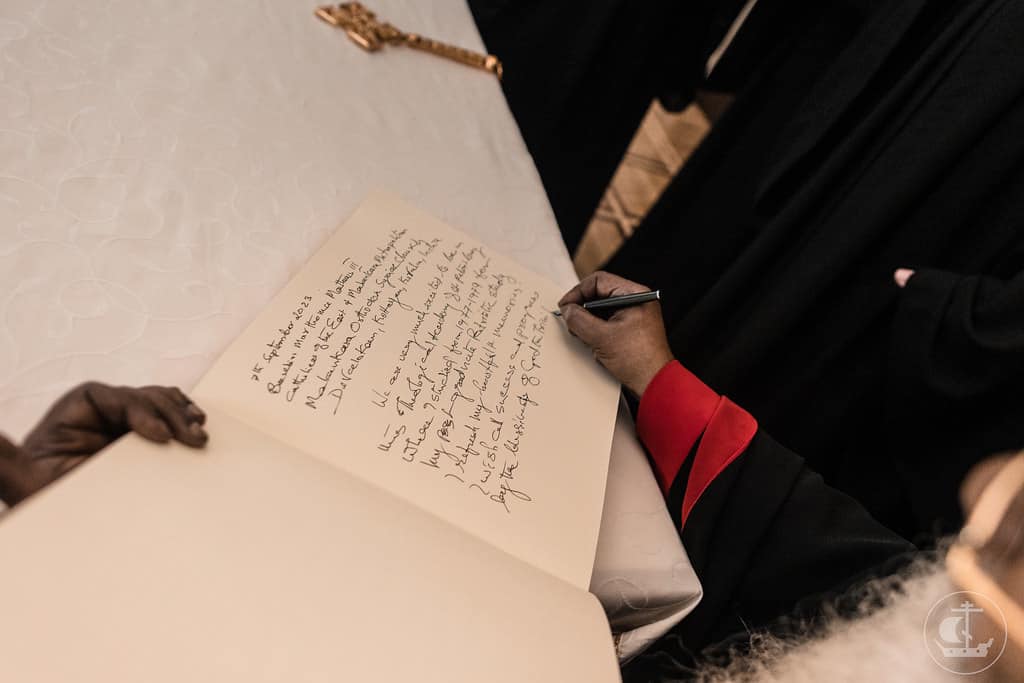 7th September 2023
Baselios Marthoma Mathews III
Catholicos of the East & Malankara Metropolitan
Malankara Orthodox Syrian Church
Devalokam, Kottayam, Kerala, India
We are very much excited to be in
this Theological Academy of St Petersburg
where I studied from 1977-1979 for
my post-graduate Patristic study
I refresh my beautiful memories!
I wish all success and progress
by the blessings of God